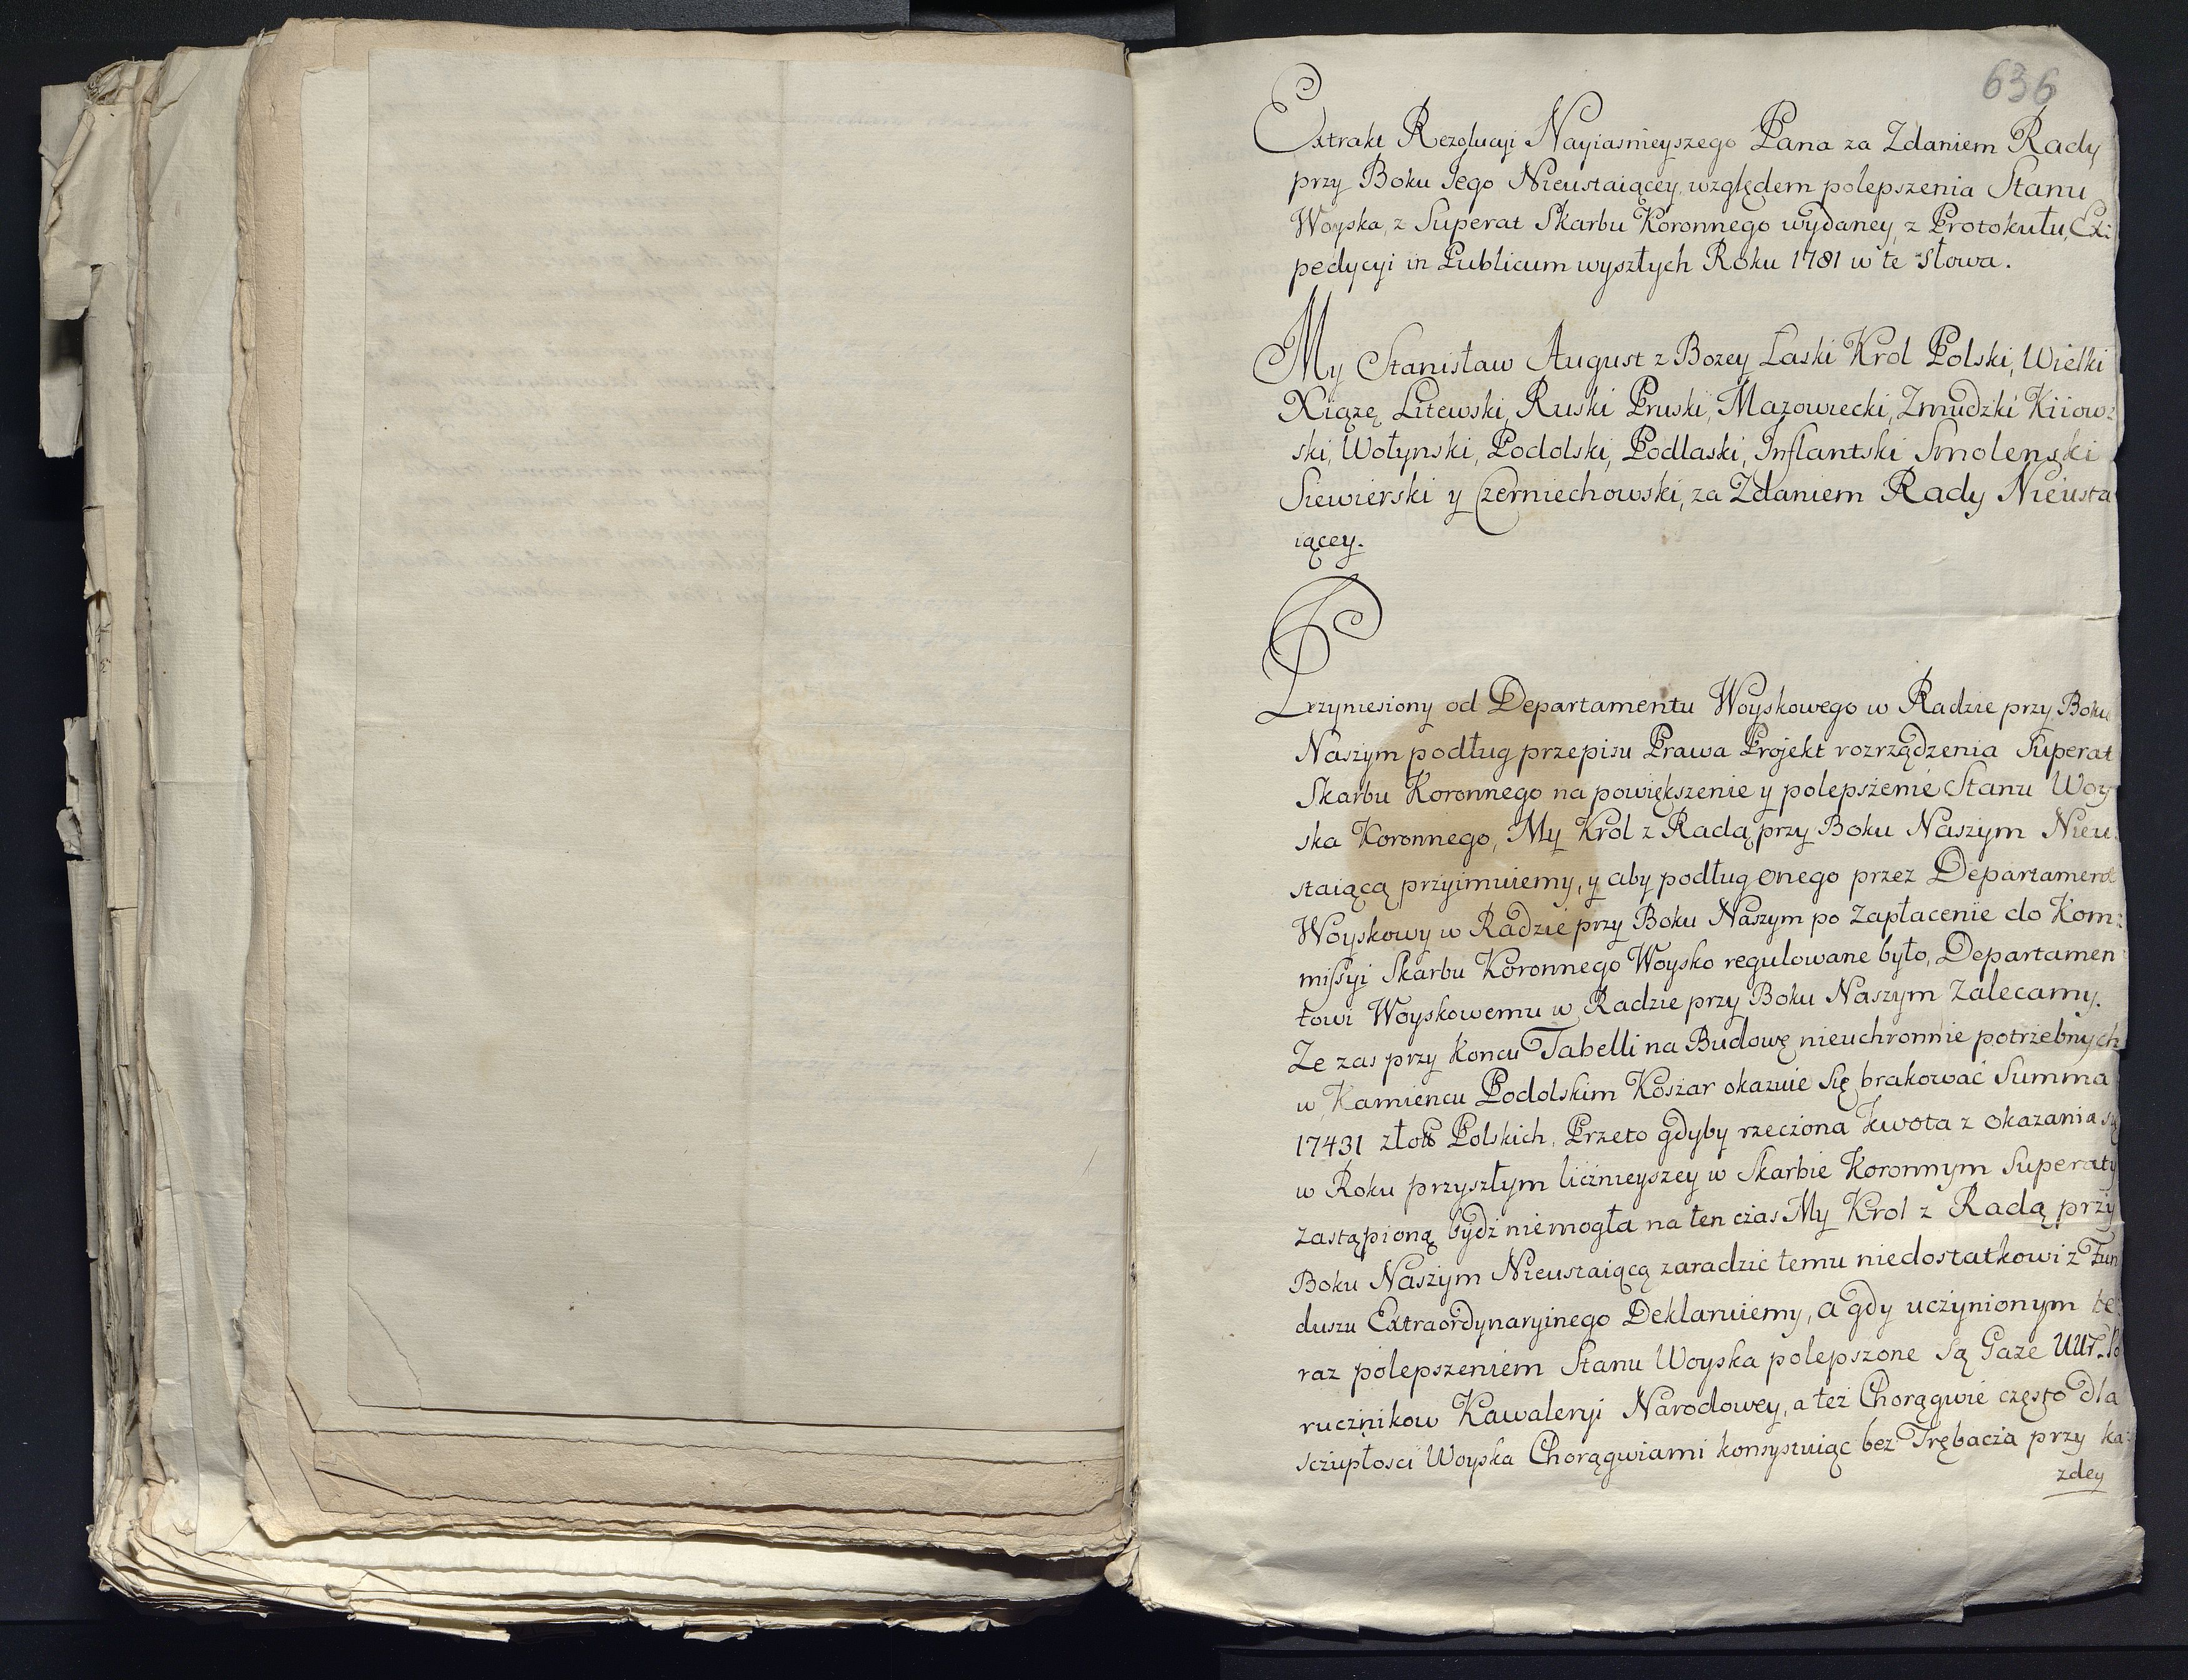 636
Extrakt Rezolucyi Nayiasnieyszego Pana za Zdaniem Rady
przy Boku Jego Nieustaiącey, względem polepszenia Stanu
Woyska, z Superat Skarbu Koronnego wydaney, z Protokułu, Ex:
pedycyi in Publicum wyszłych Roku 1781 w te Słowa.
My Stanisław August z Bozey Łaski Krol Polski, Wielki
Xiązę Litewski, Ruski Pruski, Mazowiecki, Zmudzki Kiiow:
ski, Wołynski, Podolski, Podlaski, Inflantski Smolenski
Siewierski y Czerniechowski, za Zdaniem Rady Nieusta
iącey.
Przyniesiony od Departamentu Woyskowego w Radzie przy Boku
Naszym podług przepisu Prawa Projekt rozrządzenia Superat
Skarbu Koronnego na powiększenie y polepszenie Stanu Woy
ska Koronnego, My Krol z Radą przy Boku Naszym Nieu:
staiącą przyimuiemy, y aby podług onego przez Departament
Woyskowy w Radzie przy Boku Naszym po Zapłacenie do Kom:
missyi Skarbu Koronnego Woysko regulowane było, Departamen
towi Woyskowemu w Radzie przy Boku Naszym Zalecamy.
Ze zas przy koncu Tabelli na Budowę nieuchronnie potrzebnych
w Kamiencu Podolskim Koszar okazuie się brakować Summa
17431 złott Polskich, Przeto gdyby rzeczona kwota z okazania się
w Roku przyszłym licznieyszey w Skarbie Koronnym Superaty
zastąpioną bydz niemogła na ten czas My Krol z Radą przy
Boku Naszym Nieustaiącą zaradzic temu niedostatkowi z Fun
duszu Extraordynaryinego Deklaruiemy, a gdy uczynionym te:
raz polepszeniem Stanu Woyska polepszone są Gaze UUr. Po
rucznikow Kawaleryi Narodowey, a też Chorągwie często dla
sczupłosci Woyska Chorągwiami konsystuiąc bez Trębacza przy ka:
zdey